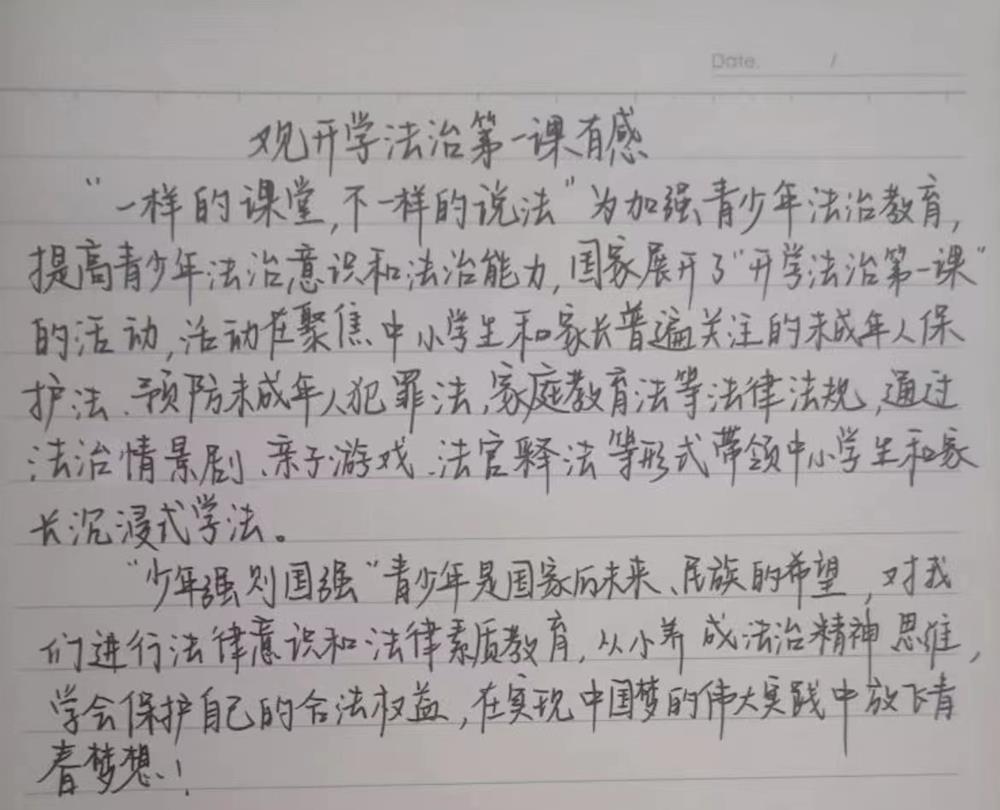 Date. /
观开学法治第一课有感
“一样的课堂,不一样的说法”为加强青少年法治教育,
提高青少年法治意识和法治能力,国家展开了“开学法治第一课”
的活动,活动在聚焦中小学生和家长普遍关注的未成年人保
护法、预防未成年人犯罪法、家庭教育法等法律法规,通过
法治情景剧、亲子游戏、法官释法等形式带领中小学生和家
长沉浸式学法。
“少年强则国强“青少年是国家的未来、民族的希望,对我
们进行法律意识和法律素质教育,从小养成法治精神思维,
学会保护自己的合法权益,在实现中国梦的伟大实践中放飞青
春梦想!